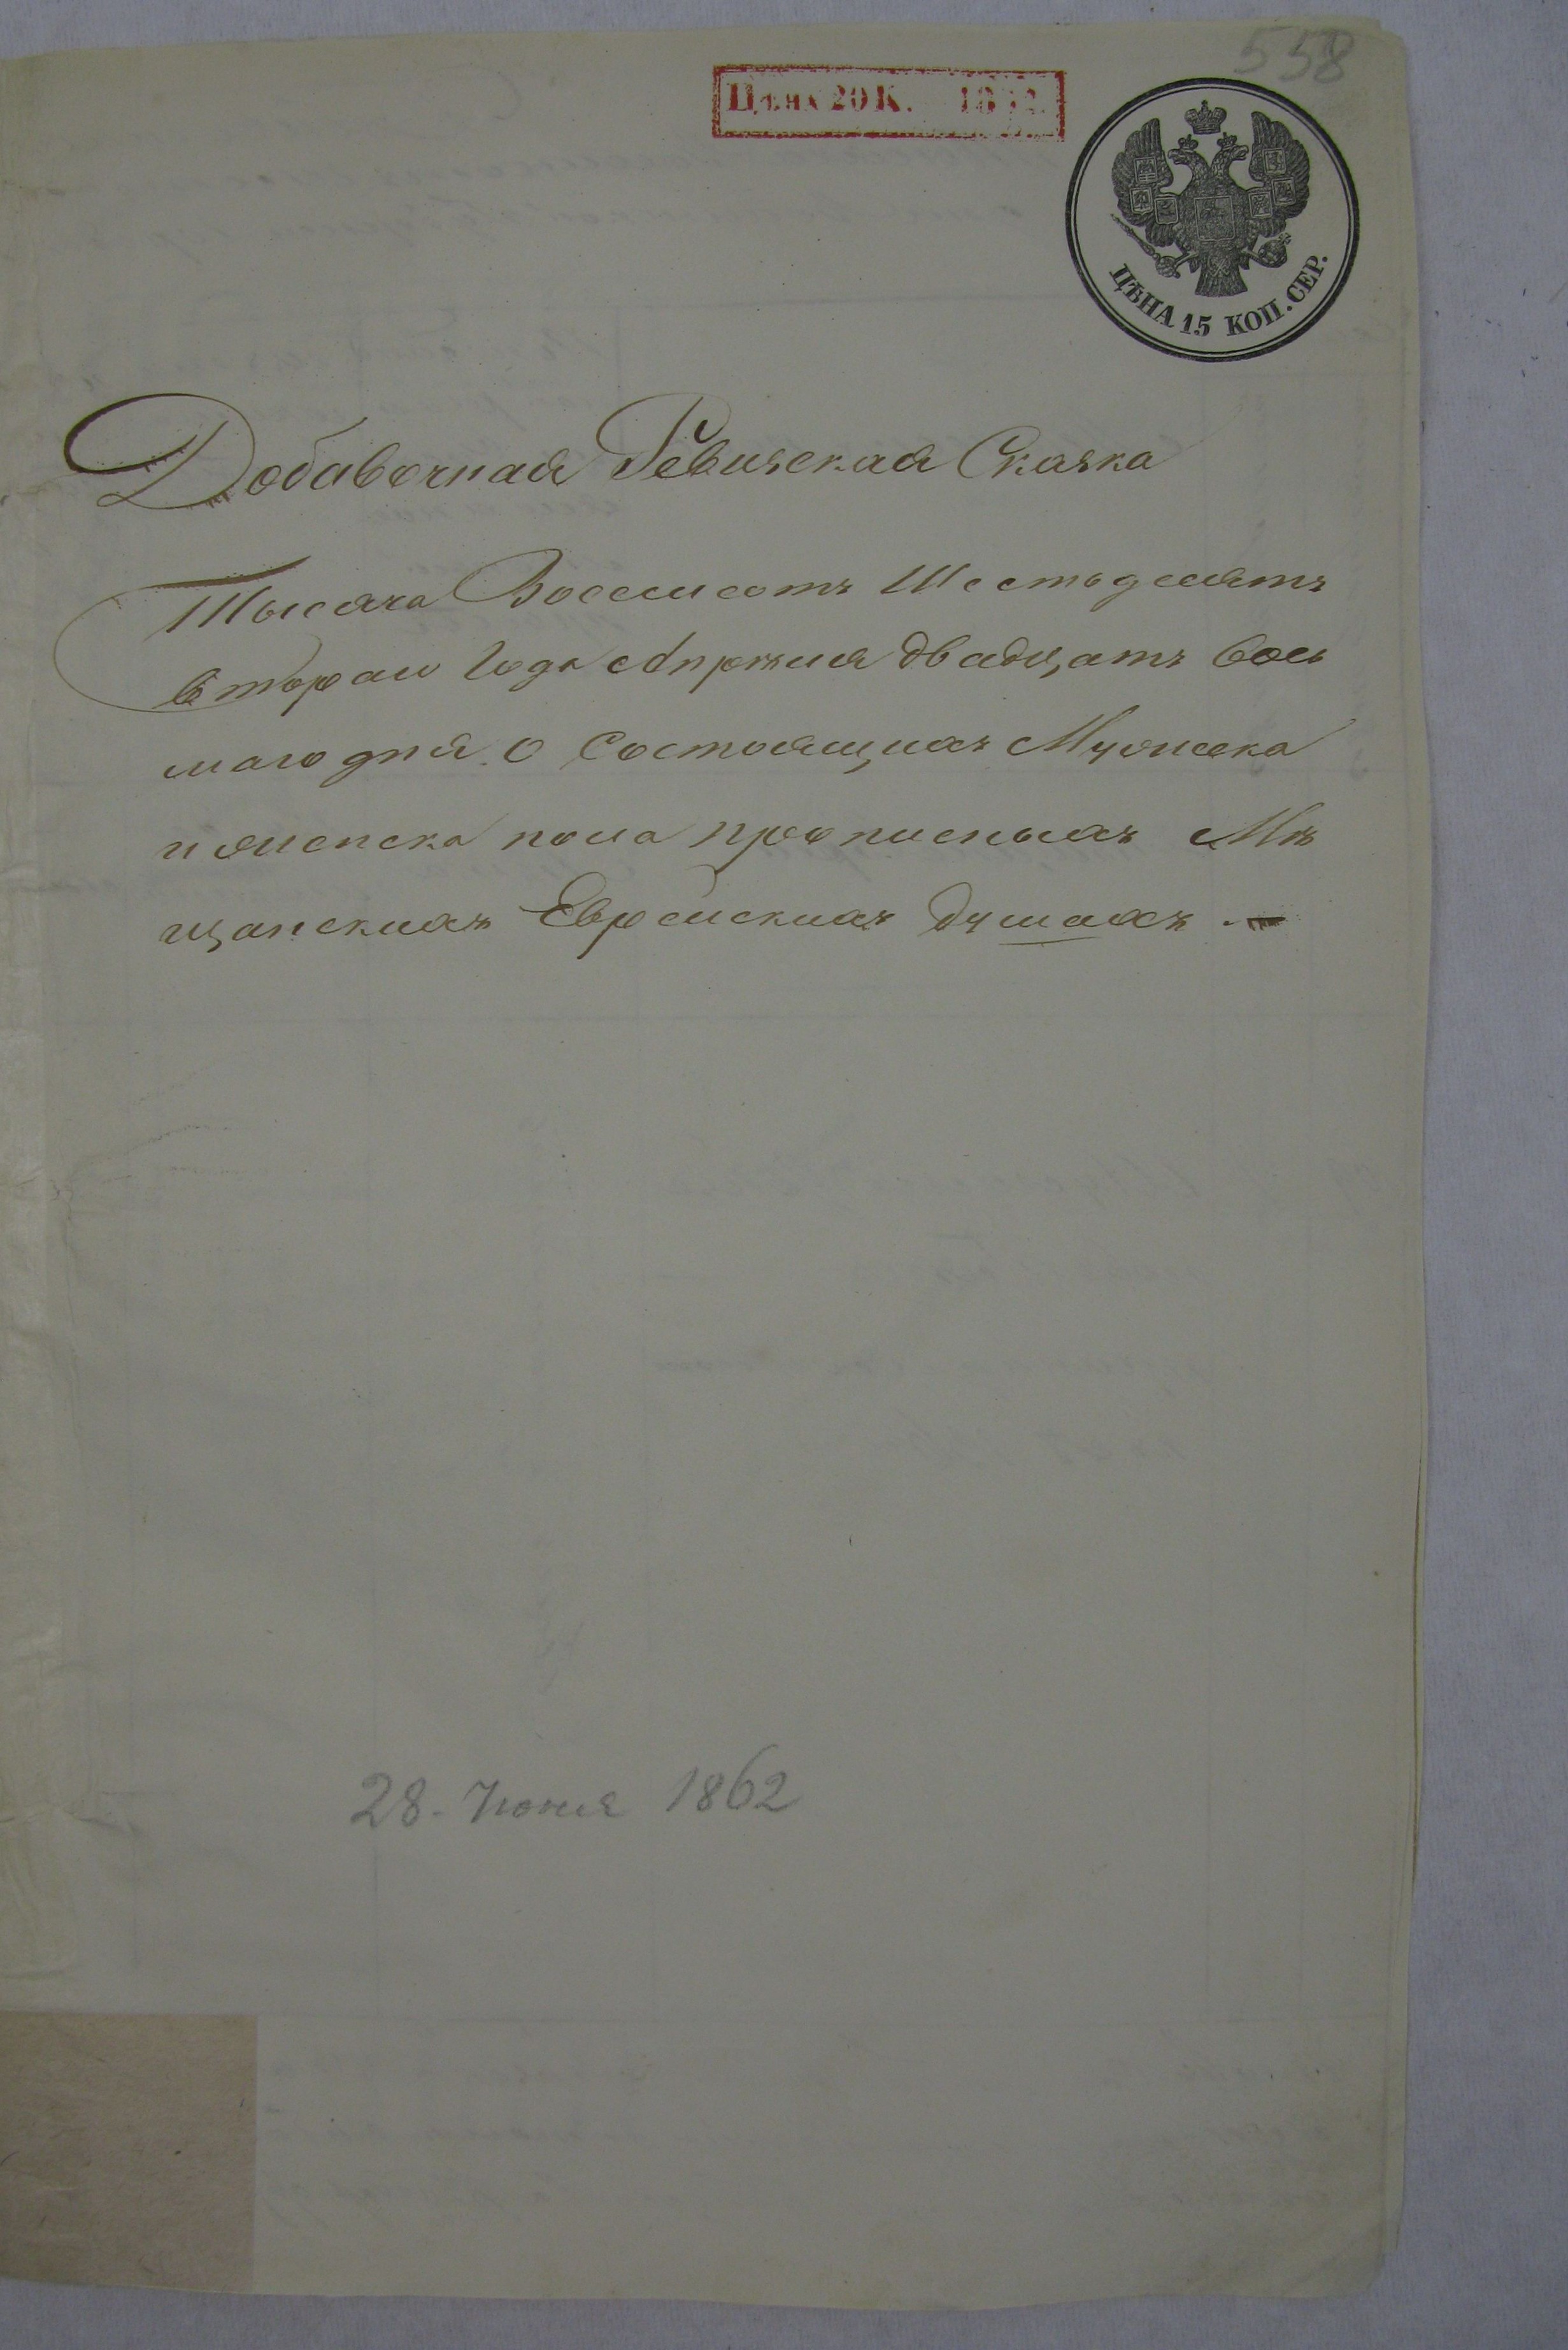 558
Цѣна 20 К. 1862.
ЦѢНА 15 КОП. СЕР.
Добавочная Ревизская Сказка
Тысяча Восемсотъ Шестьдесятъ
втораго Года Апрѣля двадцать вось
маго дня о Состоящихъ Мужеска
и женска пола прописныхъ Мѣ
щанскихъ Еврейскихъ душахъ
28. Июня 1862